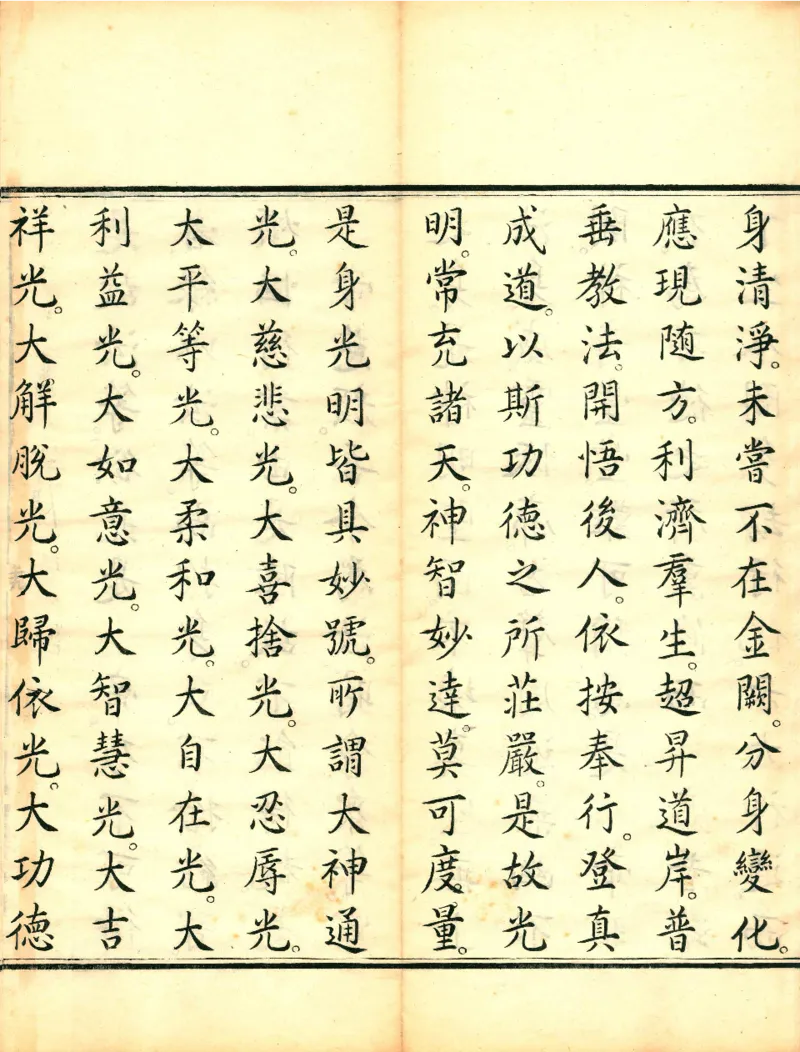 身清淨。未嘗不在金闕。分身變化。
應現随方。利濟羣生。超昇道岸。普
垂教法。開悟後人。依按奉行。登真
成道。以斯功德之所莊嚴。是故光
明。常充諸天。神智妙達。莫可度量。
是身光明皆具妙號。所謂大神通
光。大慈悲光。大喜捨光。大忍辱光。
太平等光。大柔和光。大自在光。大
利益光。大如意光。大智慧光。大吉
祥光。大解脫光。大歸依光。大功德